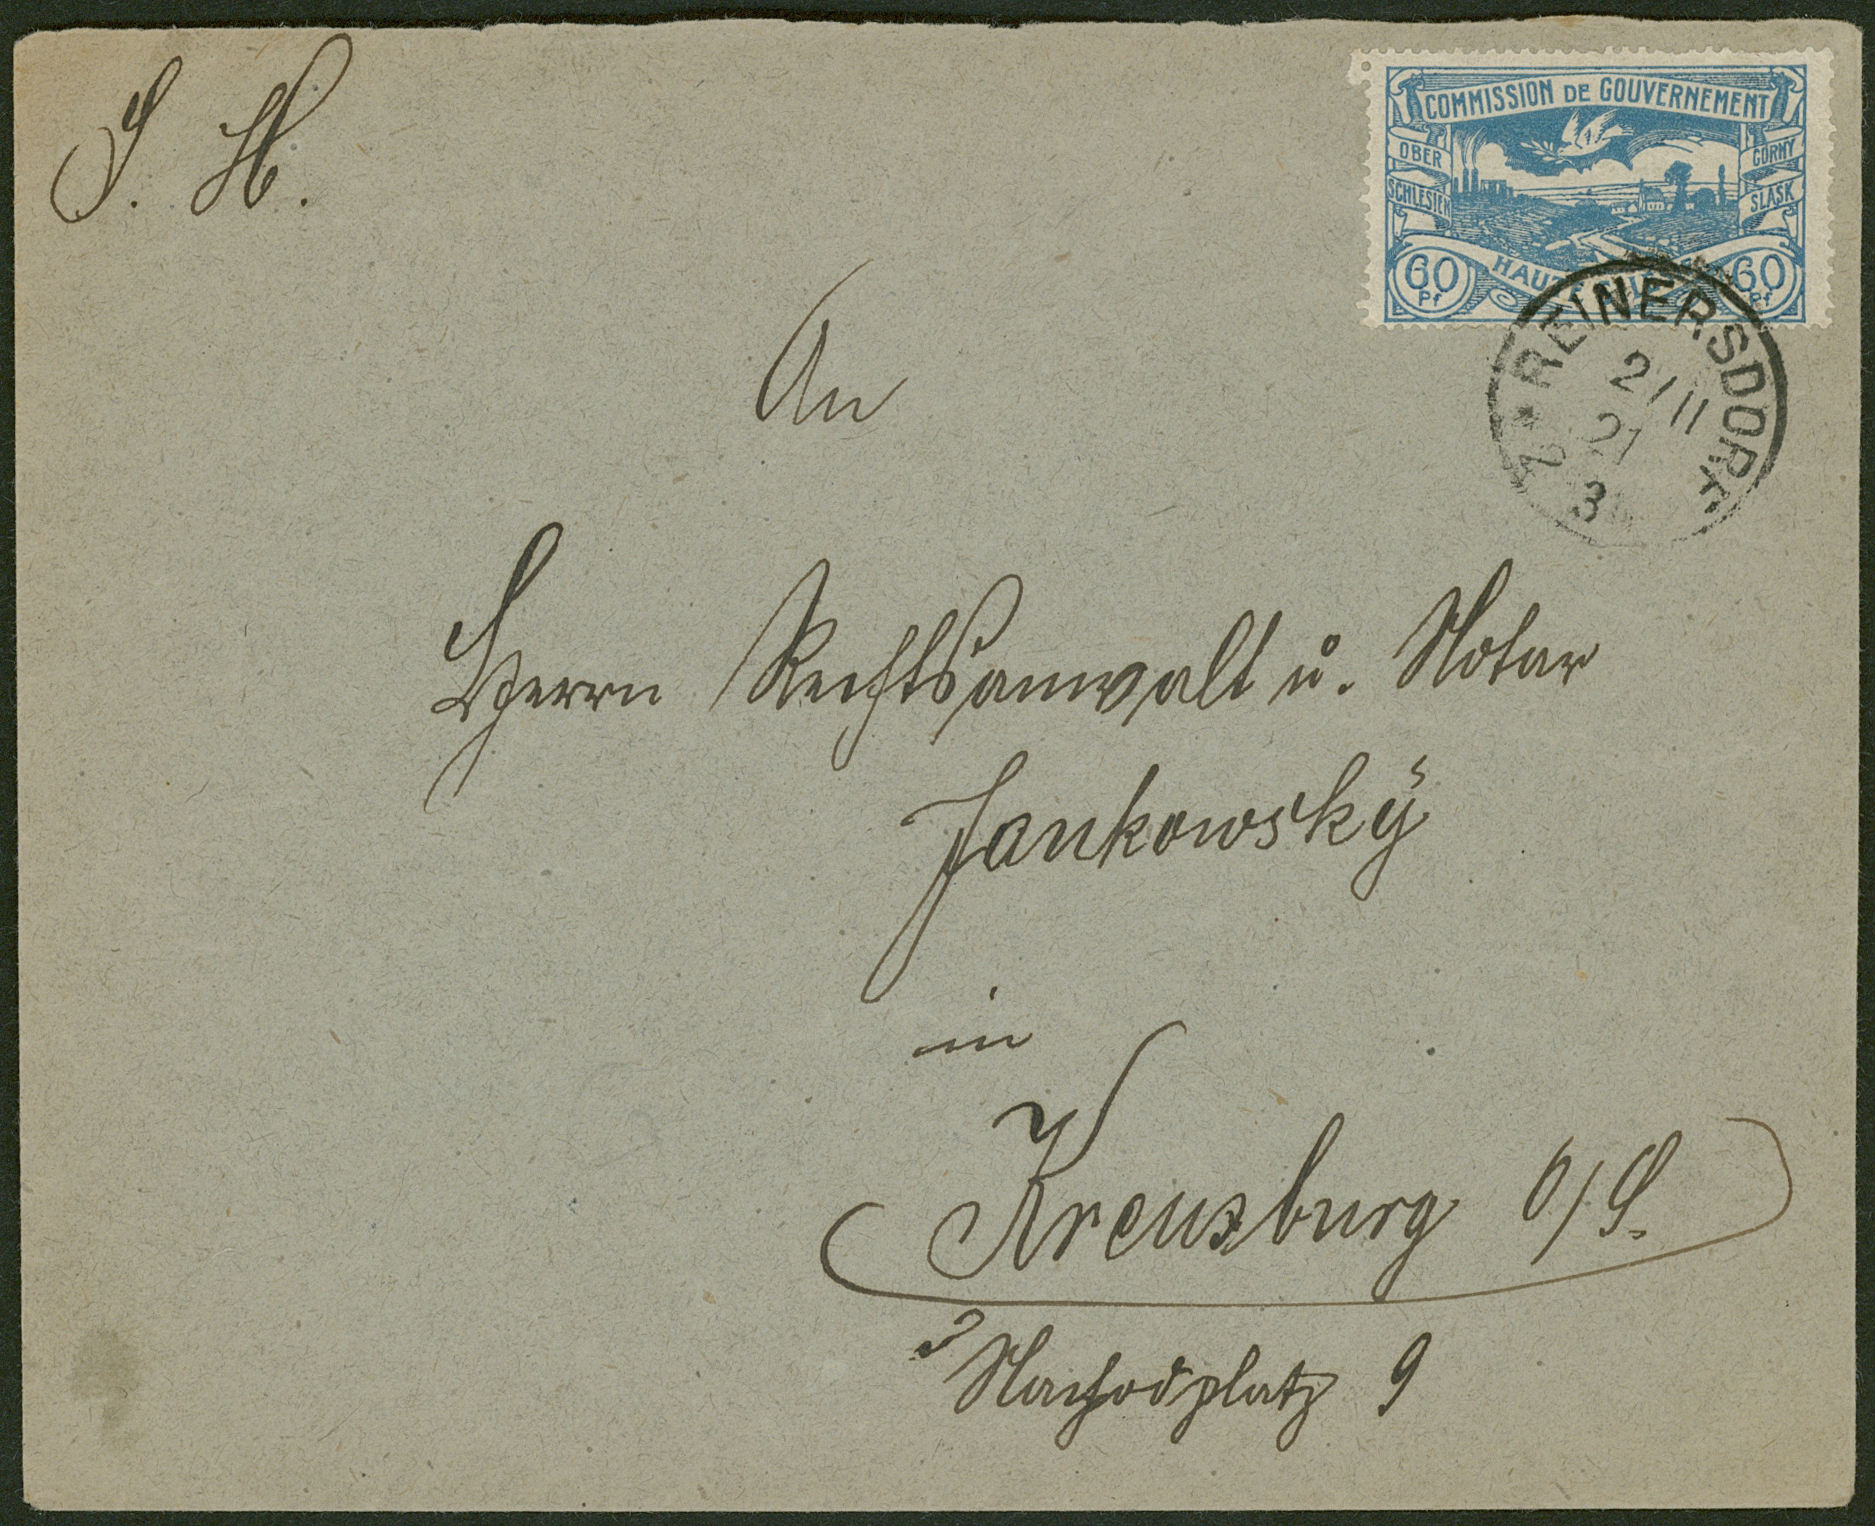 J. H.
COMMISSION DE GOUVERNEMENT
OBER
SCHLESIEN
GÓRNY
ŚLĄSK
60
Pf
HAUTE
60
Pf
REINERSDORF
2/11
21
3
An
Herrn Rechtsanwalt u. Notar
Jankowsky
in
Kreuzburg O/S.
Nachodplatz 9